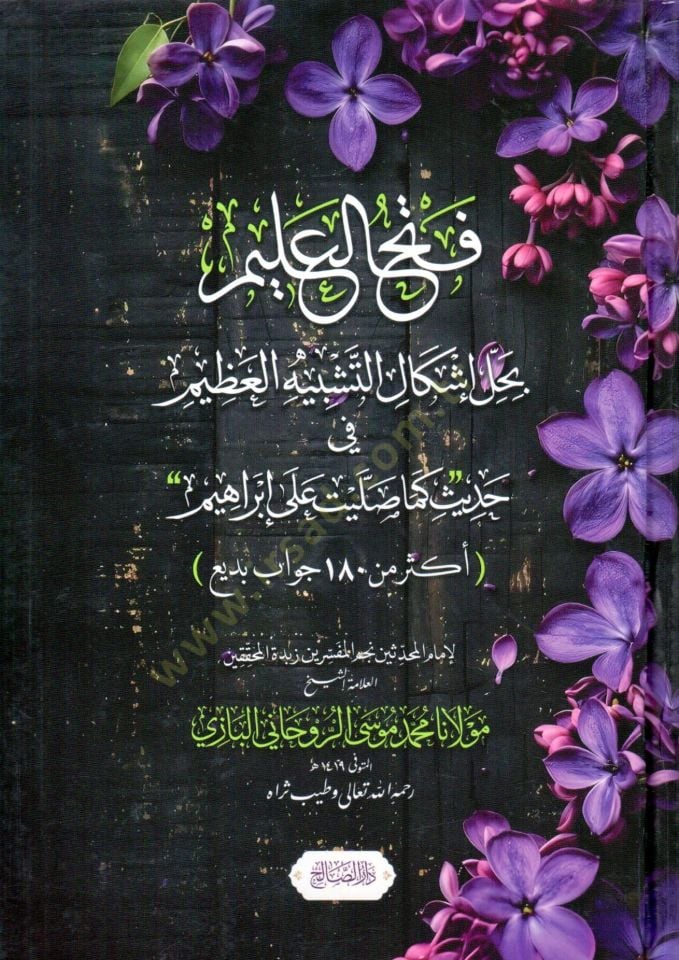 فَتْحُ العَلِيمِ
بِحَلِّ إشْكَالِ التَّشْبِيْهِ العَظِيمِ
في
حَدِيثِ "كَمَا صَلَّيْتَ عَلَى إبْرَاهِيم"
( أكثر من ١٨٠ جواب بديع )
لإمام المحدّثين نجم المفسّرين زبدة المحققين
العلامة الشيخ
مَوْلَانَا مُحَمَّد مُوسَى الرُّوحَاني البَازي
المتوفى ١٤١٩ هـ
رحمه الله تعالى وطيب ثراه
دَارُ الصَّالِح